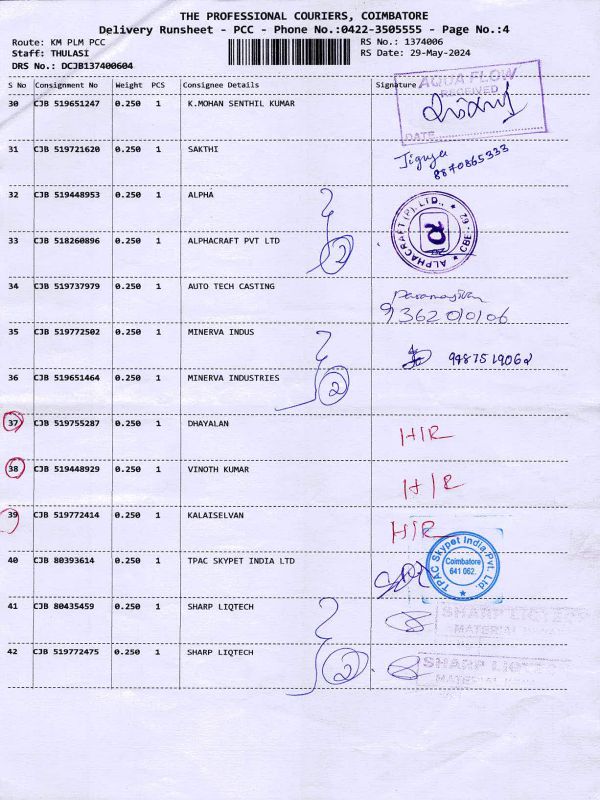 THE PROFESSIONAL COURIERS, COIMBATORE
Delivery Runsheet - PCC - Phone No.:0422-3505555 - Page No.:4
Route: KM PLM PCC RS No.: 1374006
Staff: THULASI RS Date: 29-May-2024
DRS No.: DCJB137400604
S No Consignment No Weight PCS Consignee Details Signature
30 CJB 519651247 0.250 1 K.MOHAN SENTHIL KUMAR
AQUA FLOW
RECEIVED
DATE
31 CJB 519721620 0.250 1 SAKTHI
8870865333
32 CJB 519448953 0.250 1 ALPHA
33 CJB 518260896 0.250 1 ALPHACRAFT PVT LTD 2
ALPHACRAFT (P) LTD., ★ CBE - 29 ★
34 CJB 519737979 0.250 1 AUTO TECH CASTING
9362010106
35 CJB 519772502 0.250 1 MINERVA INDUS 9487519062
36 CJB 519651464 0.250 1 MINERVA INDUSTRIES 2
37 CJB 519755287 0.250 1 DHAYALAN H/R
38 CJB 519448929 0.250 1 VINOTH KUMAR H/R
39 CJB 519772414 0.250 1 KALAISELVAN H/R
40 CJB 80393614 0.250 1 TPAC SKYPET INDIA LTD
TPAC Skypet India Pvt. Ltd. ★
Coimbatore
641 062.
41 CJB 80435459 0.250 1 SHARP LIQTECH
SHARP LIQTECH
MATERIAL
42 CJB 519772475 0.250 1 SHARP LIQTECH 2
SHARP LIQTECH
MATERIAL